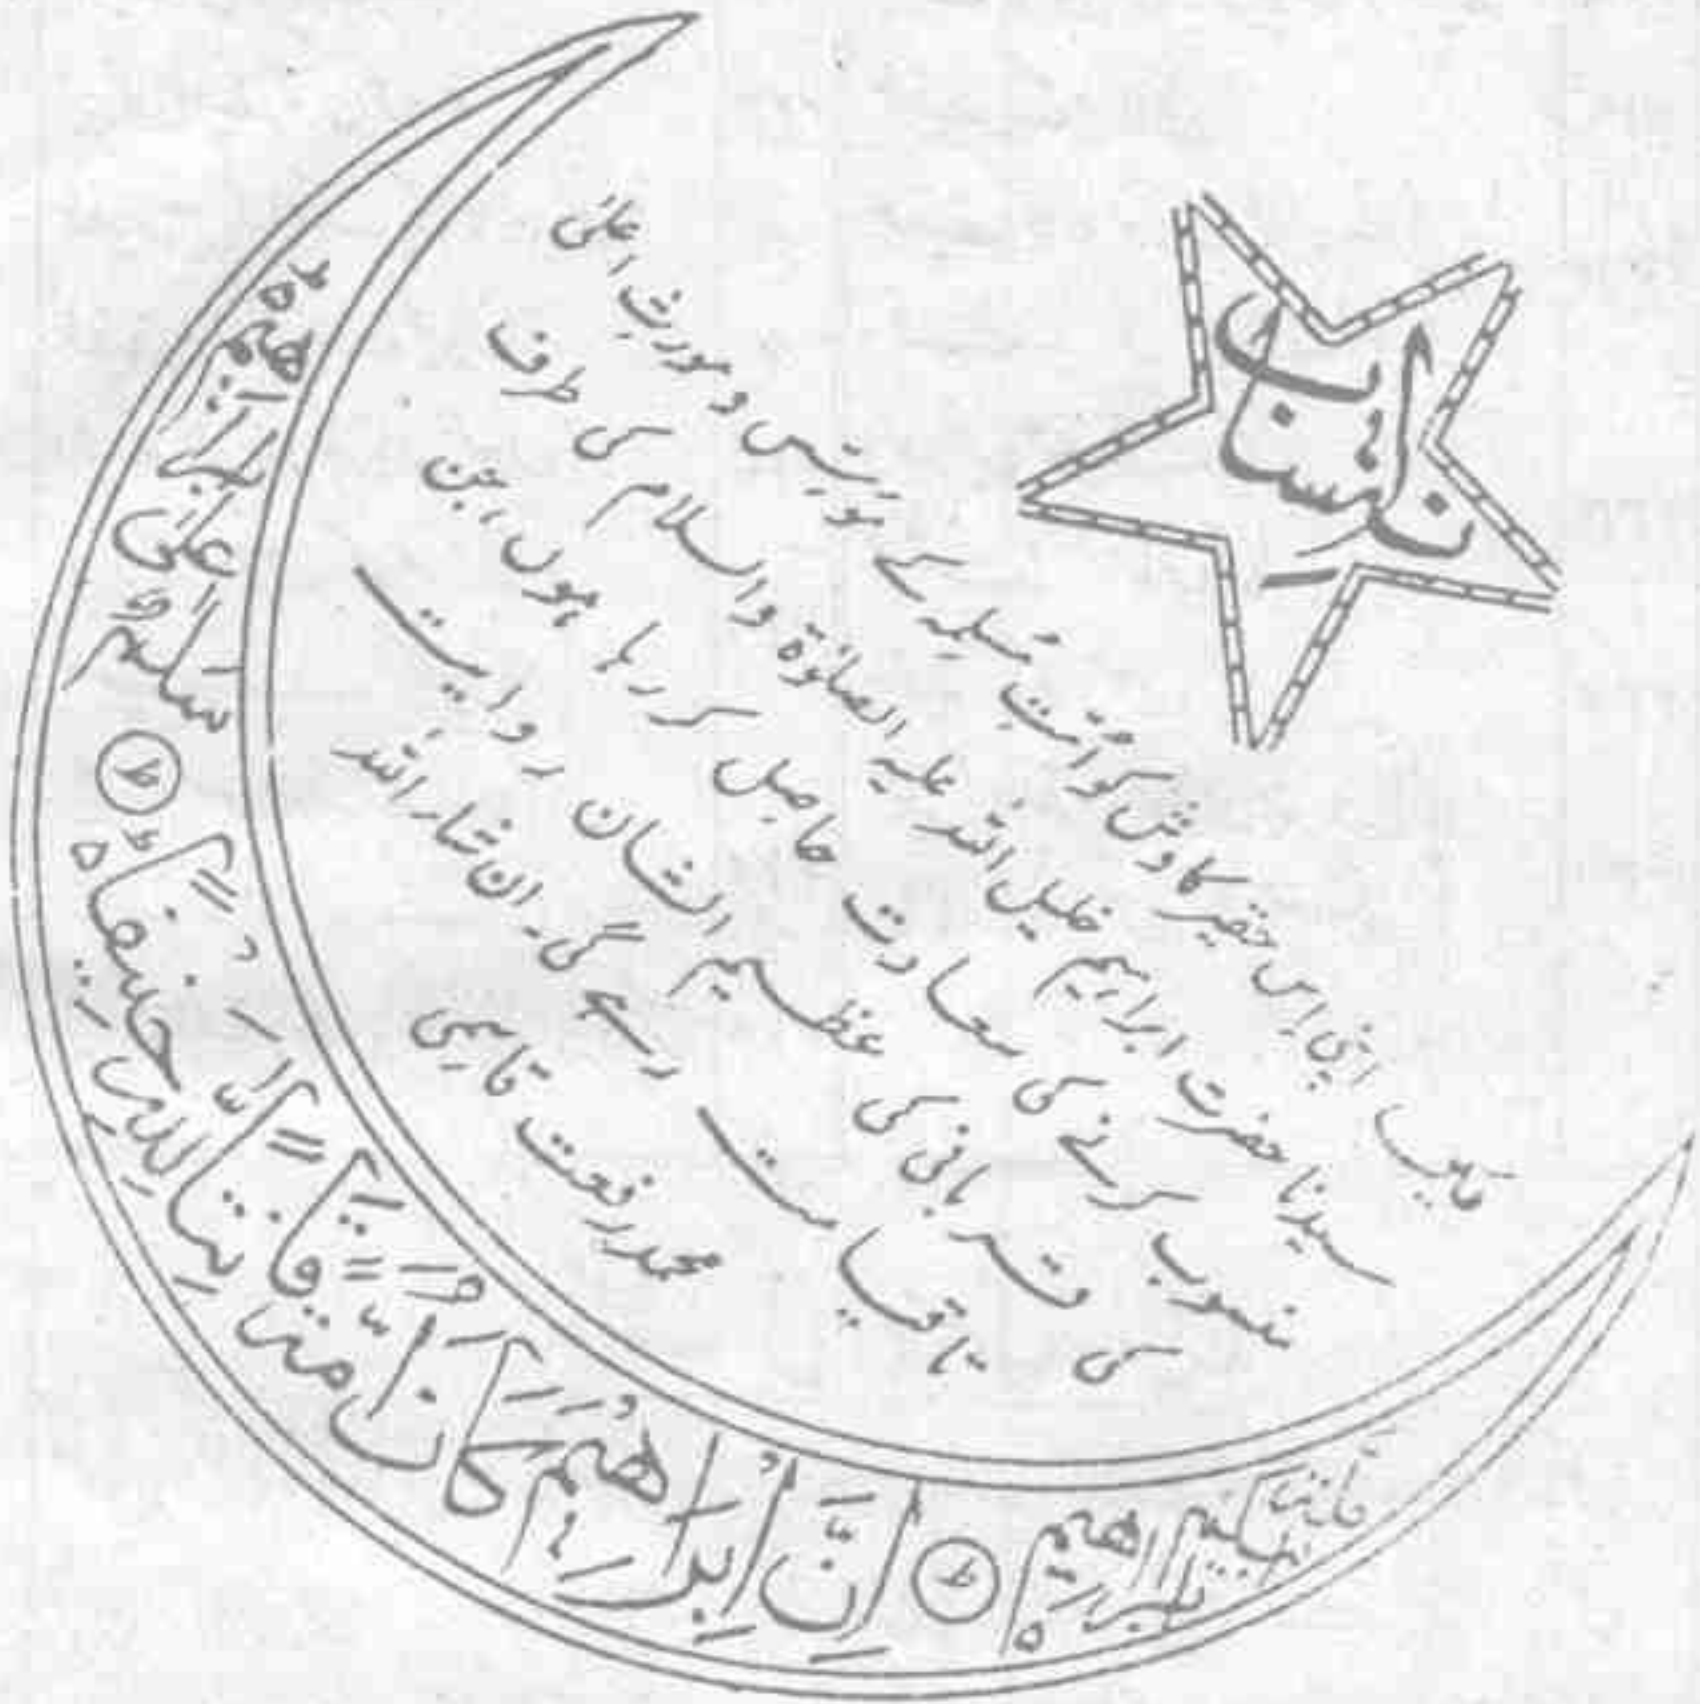 انتساب
میں اپنی اس حقیر کاوش کو اُمّتِ مُسلمہ کے مورثِ اعلیٰ
سیدنا حضرت ابراہیم خلیل اللہ علیہ الصلوٰۃ والسلام کی طرف
منسوب کرنے کی سعادت حاصل کر رہا ہوں، جن
کی قربانی کی عظیم الشان روایت
تا قیامت رہے گی۔ ان شاء اللہ
محمد رفعت قاسمی
یٰۤاِبْرٰهِیْمُ
اِنَّ اِبْرٰهِیْمَ كَانَ اُمَّةً قَانِتًا لِّلّٰهِ حَنِیْفًا
سَلٰمٌ عَلٰۤى اِبْرٰهِیْمَ